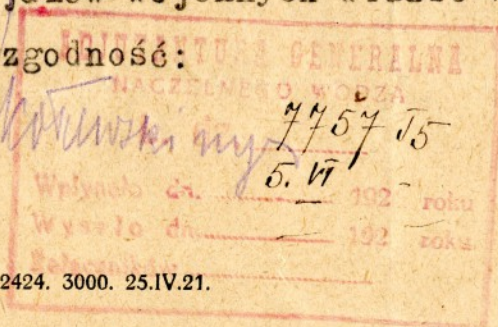 zgodność:
ADJUTANTURA GENERALNA
NACZELNEGO WODZA
7757 I5
5. VI
Wpłynęło dn. 192 roku
Wyszło dn. 192 roku
2424. 3000. 25.IV.21.